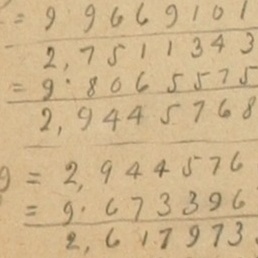 = 9 9 6 6 9 1 0 1
2, 7 5 1 1 3 4 3
= 9. 8 0 6 5 5 7 5
2, 9 4 4 5 7 6 8
9 = 2, 9 4 4 5 7 6
= 9. 6 7 3 3 9 6
2, 6 1 7 9 7 3.